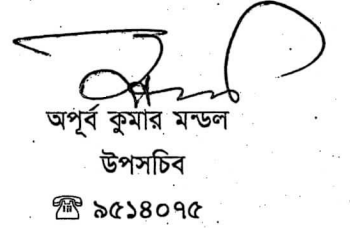 অপূর্ব কুমার মন্ডল
উপসচিব
☎ ৯৫১৪০৭৫